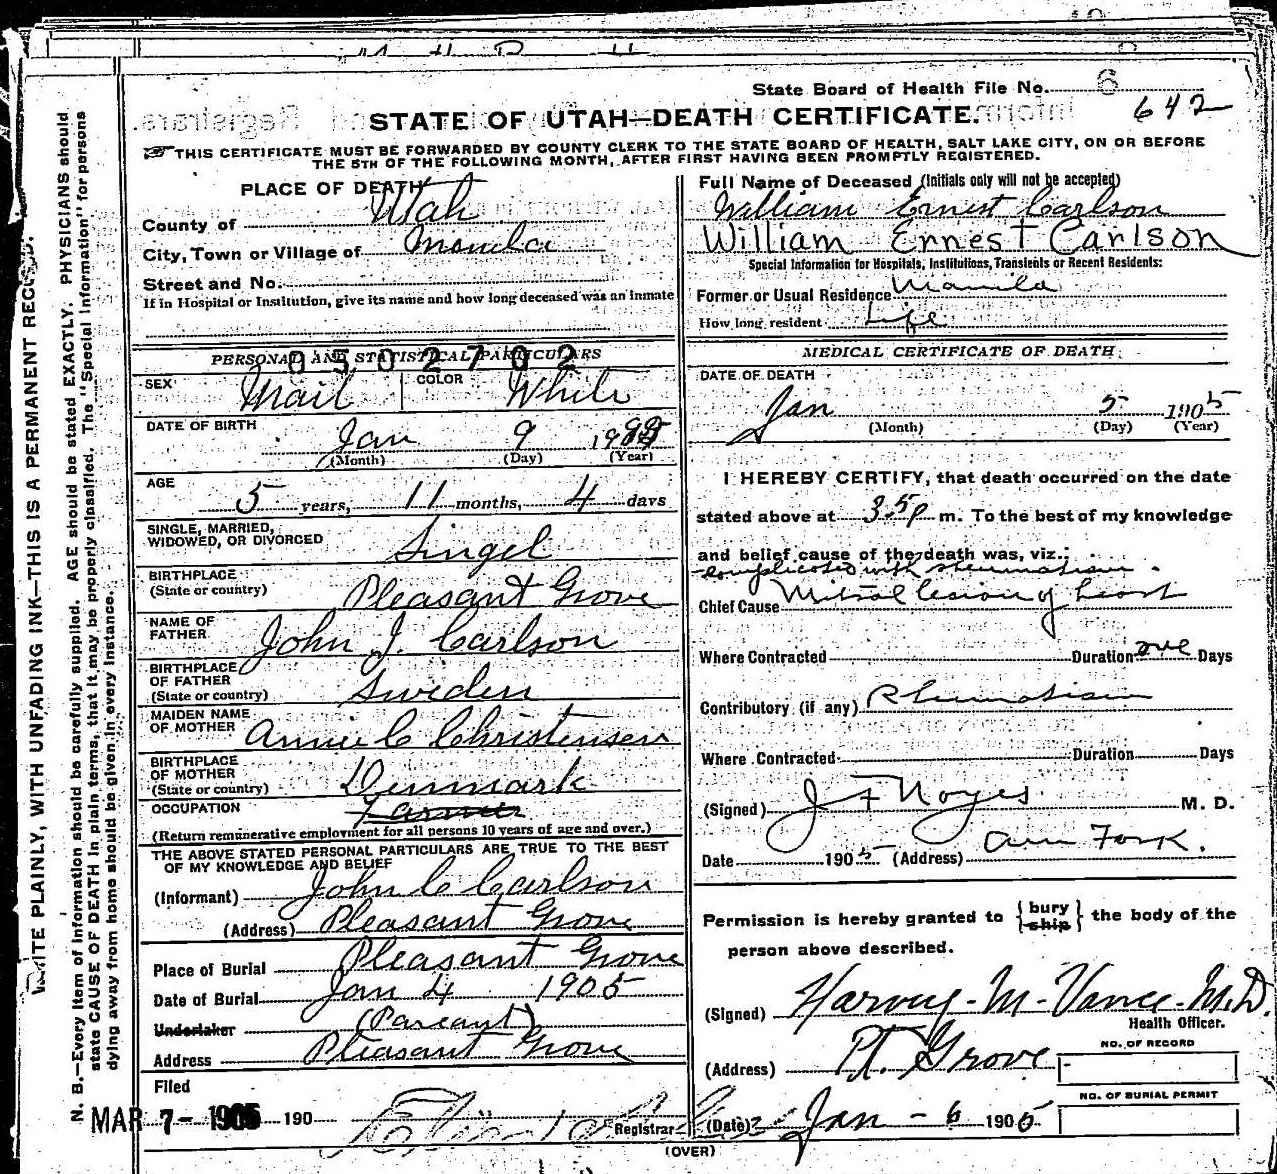 State Board of Health File No. 6
642
STATE OF UTAH—DEATH CERTIFICATE.
THIS CERTIFICATE MUST BE FORWARDED BY COUNTY CLERK TO THE STATE BOARD OF HEALTH, SALT LAKE CITY, ON OR BEFORE
THE 5TH OF THE FOLLOWING MONTH, AFTER FIRST HAVING BEEN PROMPTLY REGISTERED.
WRITE PLAINLY, WITH UNFADING INK—THIS IS A PERMANENT RECORD.
N. B.—Every item of information should be carefully supplied. AGE should be stated EXACTLY. PHYSICIANS should
state CAUSE OF DEATH in plain terms, that it may be properly classified. The "Special Information" for persons
dying away from home should be given in every instance.
PLACE OF DEATH
County of Utah
City, Town or Village of Manila
Street and No.
If in Hospital or Institution, give its name and how long deceased was an inmate
PERSONAL AND STATISTICAL PARTICULARS
0502702
SEX Mail COLOR White
DATE OF BIRTH Jan 9
(Month) (Day) (Year)
AGE 5 years, 11 months, 4 days
SINGLE, MARRIED,
WIDOWED, OR DIVORCED Singel
BIRTHPLACE
(State or country) Pleasant Grove
NAME OF
FATHER John J. Carlson
BIRTHPLACE
OF FATHER
(State or country) Sweden
MAIDEN NAME
OF MOTHER Annie C Christensen
BIRTHPLACE
OF MOTHER
(State or country) Denmark
OCCUPATION Farmer
(Return remunerative employment for all persons 10 years of age and over.)
THE ABOVE STATED PERSONAL PARTICULARS ARE TRUE TO THE BEST
OF MY KNOWLEDGE AND BELIEF
(Informant) John C Carlson
(Address) Pleasant Grove
Place of Burial Pleasant Grove
Date of Burial Jan 4 1905
Undertaker (Pareant)
Address Pleasant Grove
Filed
MAR 7- 1905 190
Registrar
Full Name of Deceased (Initials only will not be accepted)
William Ernest Carlson
William Ernest Carlson
Special Information for Hospitals, Institutions, Transients or Recent Residents:
Former or Usual Residence Manila
How long resident Life
MEDICAL CERTIFICATE OF DEATH
DATE OF DEATH
Jan 5 1905
(Month) (Day) (Year)
I HEREBY CERTIFY, that death occurred on the date
stated above at 3.5p m. To the best of my knowledge
and belief cause of the death was, viz.:
complicated with rheumatism.
Chief Cause Mitral lesion of heart
Where Contracted Duration one Days
Contributory (if any) Rheumatism
Where Contracted Duration Days
(Signed) J F Noyes M. D.
Date 1905 (Address) Am Fork.
Permission is hereby granted to {bury
ship} the body of the
person above described.
(Signed) Harvey M. Vance M.D.
Health Officer.
(Address) Pt. Grove
NO. OF RECORD
NO. OF BURIAL PERMIT
(Date) Jan - 6 1905
(OVER)